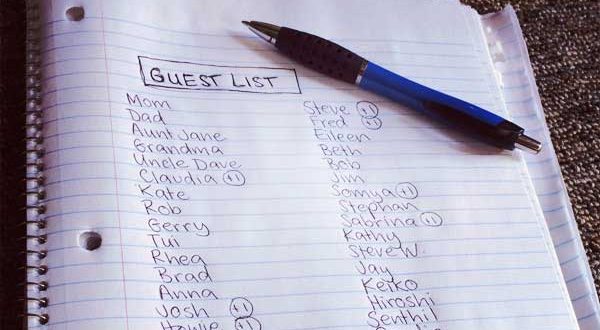 GUEST LIST
Mom
Dad
Aunt Jane
Grandma
Uncle Dave
Claudia +1
Kate
Rob
Gerry
Tui
Rhea
Brad
Anna
Josh +1
Howie +1
Steve +1
Fred +1
Eileen
Beth
Bob
Jim
Somya +1
Stephan
Sabrina +1
Kathy
Steve W.
Jay
Keiko
Hiroshi
Senthil